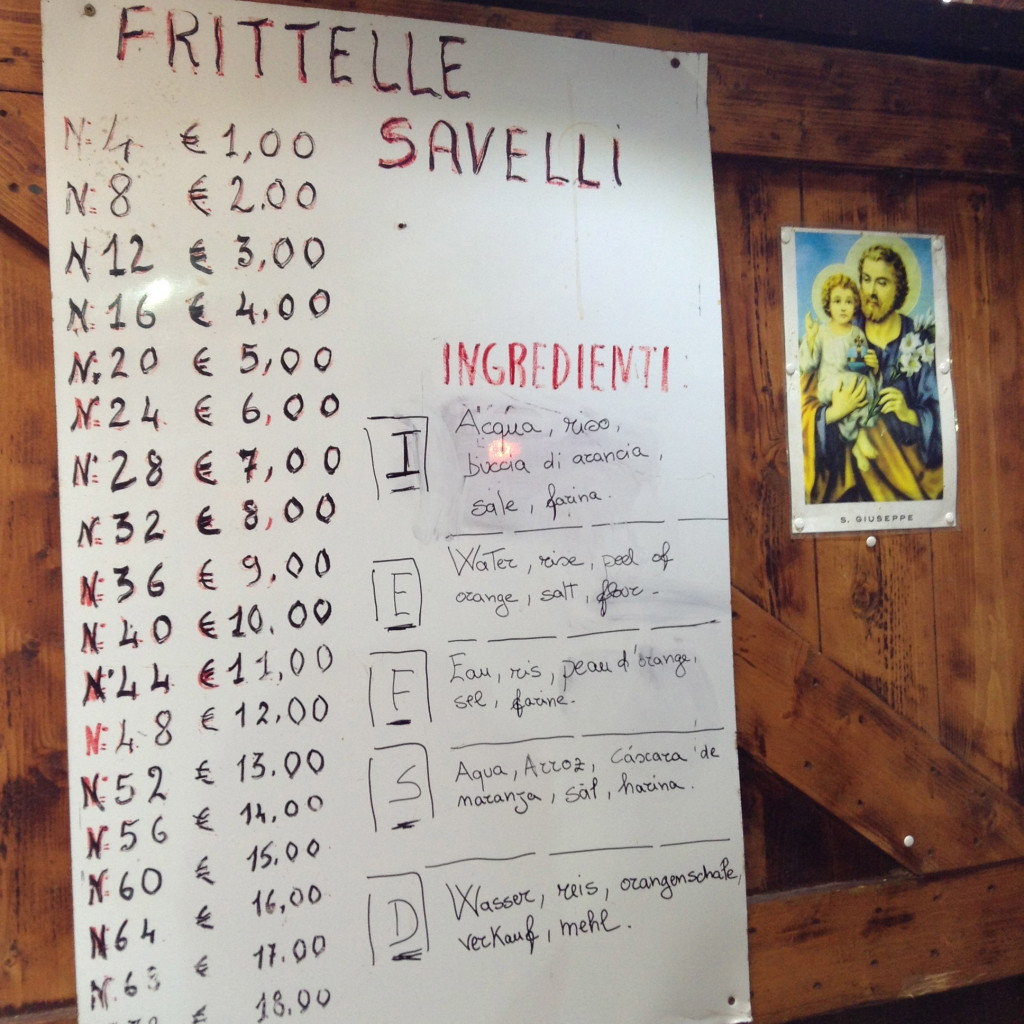 FRITTELLE
SAVELLI
N: 4 € 1,00
N: 8 € 2.00
N: 12 € 3,00
N: 16 € 4,00
N: 20 € 5,00
N: 24 € 6,00
N: 28 € 7,00
N: 32 € 8,00
N: 36 € 9,00
N: 40 € 10.00
N: 44 € 11,00
N: 48 € 12.00
N: 52 € 13.00
N: 56 € 14.00
N: 60 € 15.00
N: 64 € 16,00
N: 68 € 17.00
€ 18.00
INGREDIENTI:
I
Acqua, riso,
buccia di arancia,
sale, farina.
E
Water, rise, peel of
orange, salt, flour.
F
Eau, ris, peau d'orange,
sel, farine.
S
Aqua, Arroz, Cáscara de
naranja, sal, harina.
D
Wasser, reis, orangenschale,
verkauf, mehl.
S. GIUSEPPE